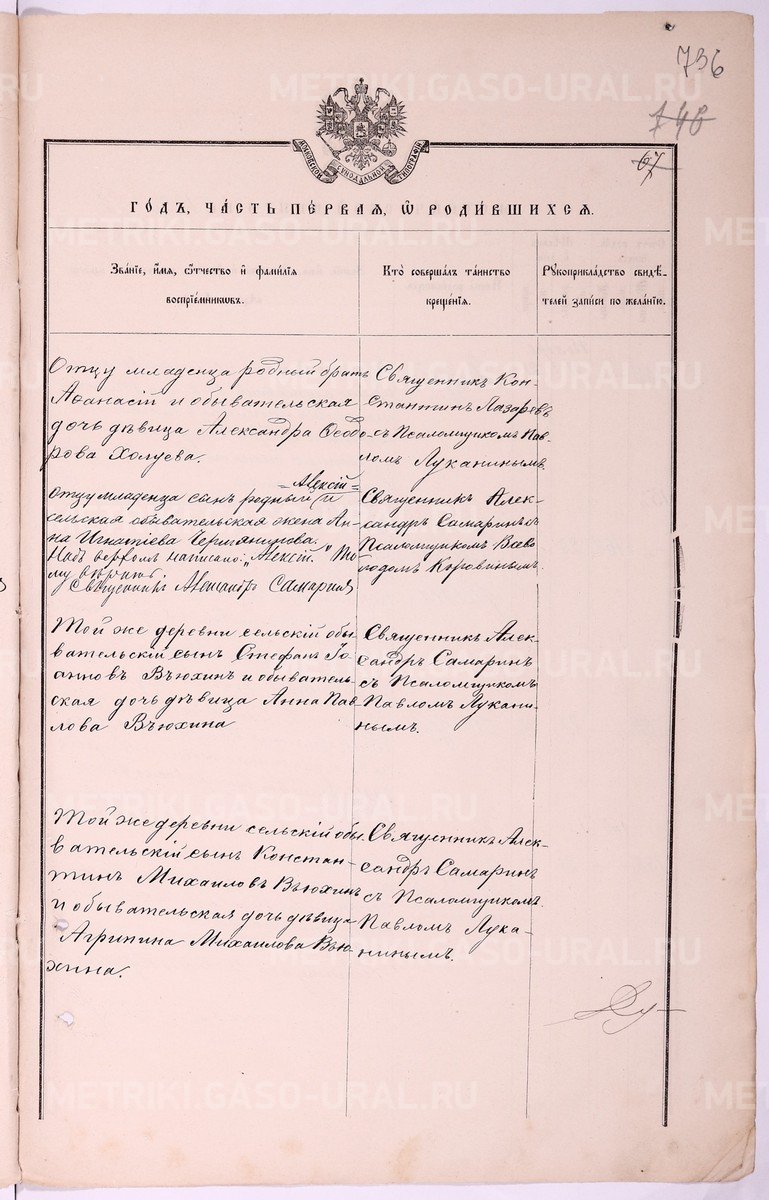 736
146
67
МОСКОВСКОЙ СѴНОДАЛЬНОЙ ТИПОГРАФІИ
ГО́ДЪ, ЧА́СТЬ ПЕ́РВАЯ, Ѡ҆ РОДИ́ВШИХСЯ.
Зва́нїе, и҆́мя, ѻ҆́тчество и҆ фами́лїя
воспрїе́мникѡвъ.
Кто̀ соверша́лъ та́инство
креще́нїя.
Рꙋкоприкла́дство свидѣ́-
телей за́писи по жела́нїю.
Отцу младенца родный братъ
Аѳанасій и обывательская
дочь дѣвица Александра Ѳеодо-
рова Холуева.
Священникъ Кон-
стантинъ Лазаревъ
съ Псаломщикомъ Пав-
ломъ Луканинымъ.
Алексій
Отцу младенца сынъ родный и
сельская обывательская жена Ан-
на Игнатіева Чермянинова.
Надъ верхомъ написано: „Алексій." То-
му вѣрить
Священникъ Александръ Самаринъ
Священникъ Алек-
сандръ Самаринъ съ
Псаломщикомъ Всево-
лодомъ Коровинымъ
Той же деревни сельскій обы-
вательскій сынъ Стефанъ Іо-
анновъ Вьюхинъ и обыватель-
ская дочь дѣвица Анна Пав-
лова Вьюхина
Священникъ Алек-
сандръ Самаринъ
съ Псаломщикомъ
Павломъ Лукани-
нымъ.
Той же деревни сельскій обы-
вательскій сынъ Констан-
тинъ Михаиловъ Вьюхинъ
и обывательская дочь дѣвица
Агрипина Михаилова Вью-
хина.
Священникъ Алек-
сандръ Самаринъ
съ Псаломщикомъ
Павломъ Лука-
нинымъ.
METRIKI.GASO-URAL.RU